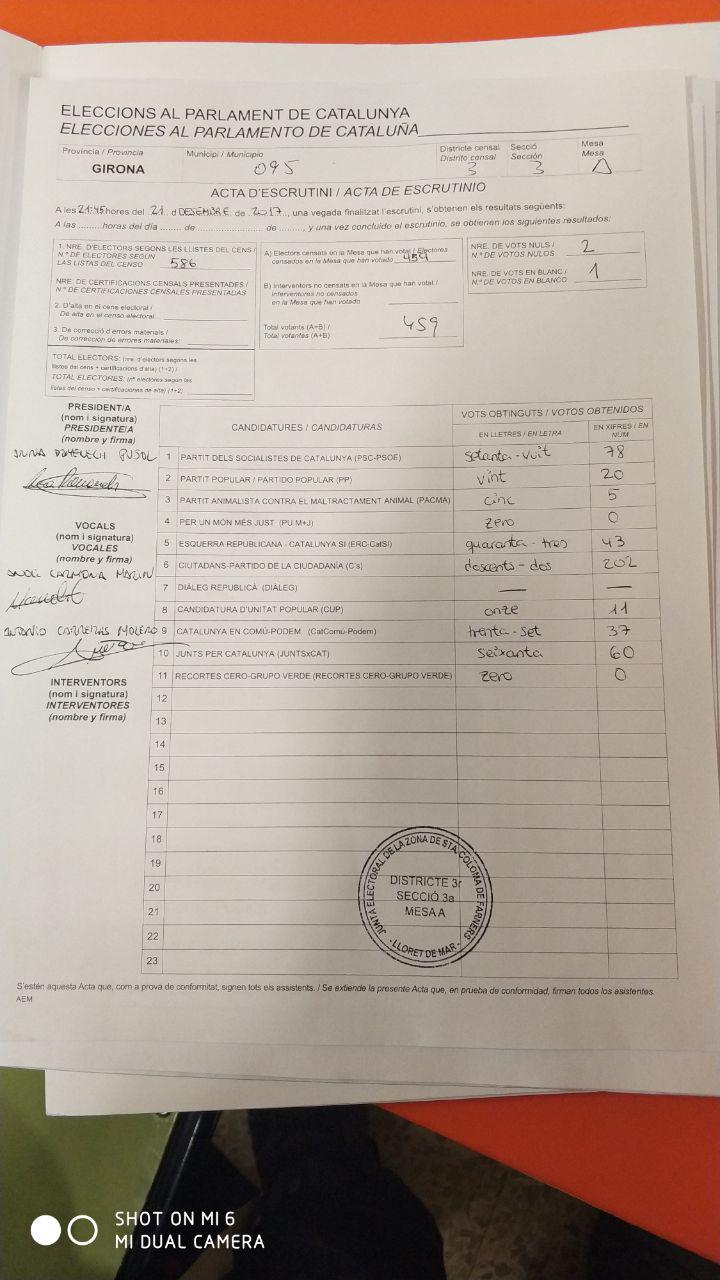 ELECCIONS AL PARLAMENT DE CATALUNYA
ELECCIONES AL PARLAMENTO DE CATALUÑA
Província / Provincia
GIRONA
Municipi / Municipio
095
Districte censal
Distrito censal
3
Secció
Sección
3
Mesa
Mesa
A
ACTA D'ESCRUTINI / ACTA DE ESCRUTINIO
A les 21:45 hores del 21 d DESEMBRE de 2017, una vegada finalitzat l'escrutini, s'obtenen els resultats següents:
A las .........horas del día ...... de ........................ de ........, y una vez concluido el escrutinio, se obtienen los siguientes resultados:
1. NRE. D'ELECTORS SEGONS LES LLISTES DEL CENS /
N.º DE ELECTORES SEGÚN
LAS LISTAS DEL CENSO 586
NRE. DE CERTIFICACIONS CENSALS PRESENTADES /
N.º DE CERTIFICACIONES CENSALES PRESENTADAS
2. D'alta en el cens electoral /
De alta en el censo electoral:
3. De correcció d'errors materials /
De corrección de errores materiales:
TOTAL ELECTORS: (nre. d'electors segons les
llistes del cens + certificacions d'alta) (1+2) /
TOTAL ELECTORES: (nº electores según las
listas del censo + certificaciones de alta) (1+2)
A) Electors censats en la Mesa que han votat / Electores
censados en la Mesa que han votado 459
B) Interventors no censats en la Mesa que han votat /
Interventores no censados
en la Mesa que han votado
Total votants (A+B) /
Total votantes (A+B)
459
NRE. DE VOTS NULS /
N.º DE VOTOS NULOS 2
NRE. DE VOTS EN BLANC /
N.º DE VOTOS EN BLANCO 1
PRESIDENT/A
(nom i signatura)
PRESIDENTE/A
(nombre y firma)
PUJOL
VOCALS
(nom i signatura)
VOCALES
(nombre y firma)
CARMONA MARTIN
ANTONIO CARRERAS MOLERO
INTERVENTORS
(nom i signatura)
INTERVENTORES
(nombre y firma)
CANDIDATURES / CANDIDATURAS
VOTS OBTINGUTS / VOTOS OBTENIDOS
EN LLETRES / EN LETRA
EN XIFRES / EN NÚM.
1 PARTIT DELS SOCIALISTES DE CATALUNYA (PSC-PSOE) setanta-vuit 78
2 PARTIT POPULAR / PARTIDO POPULAR (PP) vint 20
3 PARTIT ANIMALISTA CONTRA EL MALTRACTAMENT ANIMAL (PACMA) cinc 5
4 PER UN MÓN MÉS JUST (PU M+J) zero 0
5 ESQUERRA REPUBLICANA - CATALUNYA SÍ (ERC-CatSí) quaranta-tres 43
6 CIUTADANS-PARTIDO DE LA CIUDADANÍA (C's) doscents-dos 202
7 DIÀLEG REPUBLICÀ (DIÀLEG) — —
8 CANDIDATURA D'UNITAT POPULAR (CUP) onze 11
9 CATALUNYA EN COMÚ-PODEM (CatComú-Podem) trenta-set 37
10 JUNTS PER CATALUNYA (JUNTSxCAT) seixanta 60
11 RECORTES CERO-GRUPO VERDE (RECORTES CERO-GRUPO VERDE) zero 0
12
13
14
15
16
17
18
19
20
21
22
23
JUNTA ELECTORAL DE LA ZONA DE STA. COLOMA DE FARNERS
DISTRICTE 3r
SECCIÓ 3a
MESA A
- LLORET DE MAR -
S'estén aquesta Acta que, com a prova de conformitat, signen tots els assistents. / Se extiende la presente Acta que, en prueba de conformidad, firman todos los asistentes.
AEM
SHOT ON MI 6
MI DUAL CAMERA